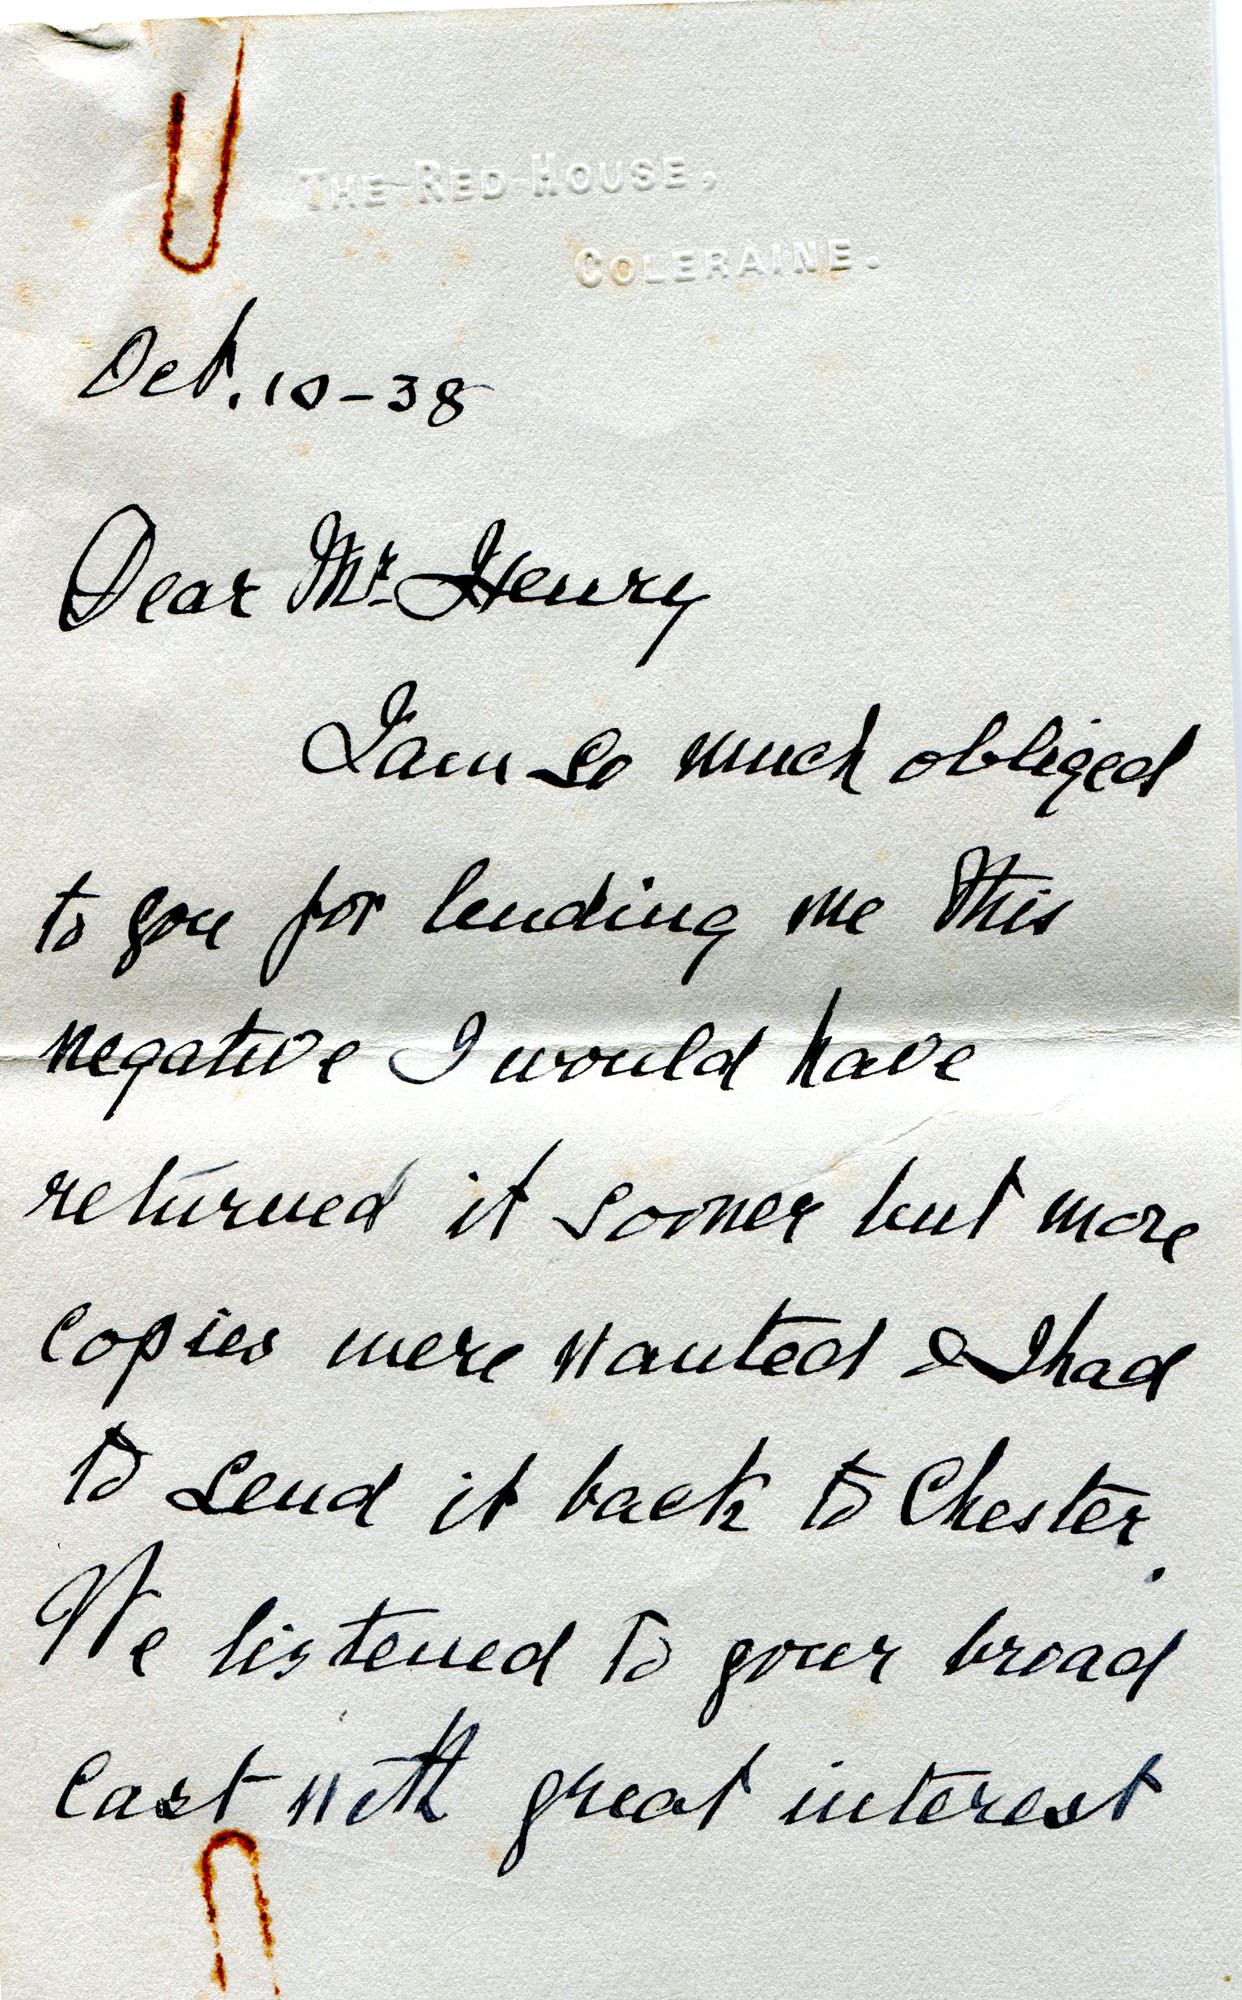 THE RED HOUSE,
COLERAINE.
Oct. 10-38
Dear Mr. Henry
I am so much obliged
to you for lending me this
negative I would have
returned it sooner but more
copies were wanted & I had
to send it back to Chester.
We listened to your broad
cast with great interest